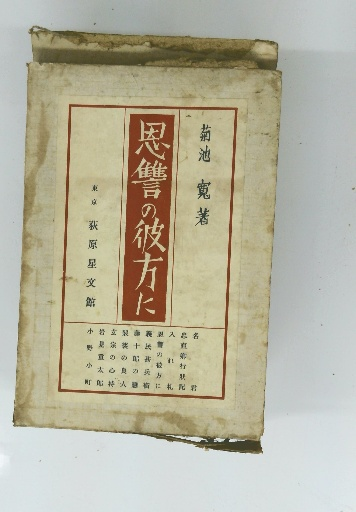 菊池寛著
恩讐の彼方に
東京 荻原星文館
名君
忠直卿行状記
入れ札
恩讐の彼方に
義民甚兵衛
藤十郎の戀
袈裟の良人
玄宗の心持
岩見重太郎
小野小町